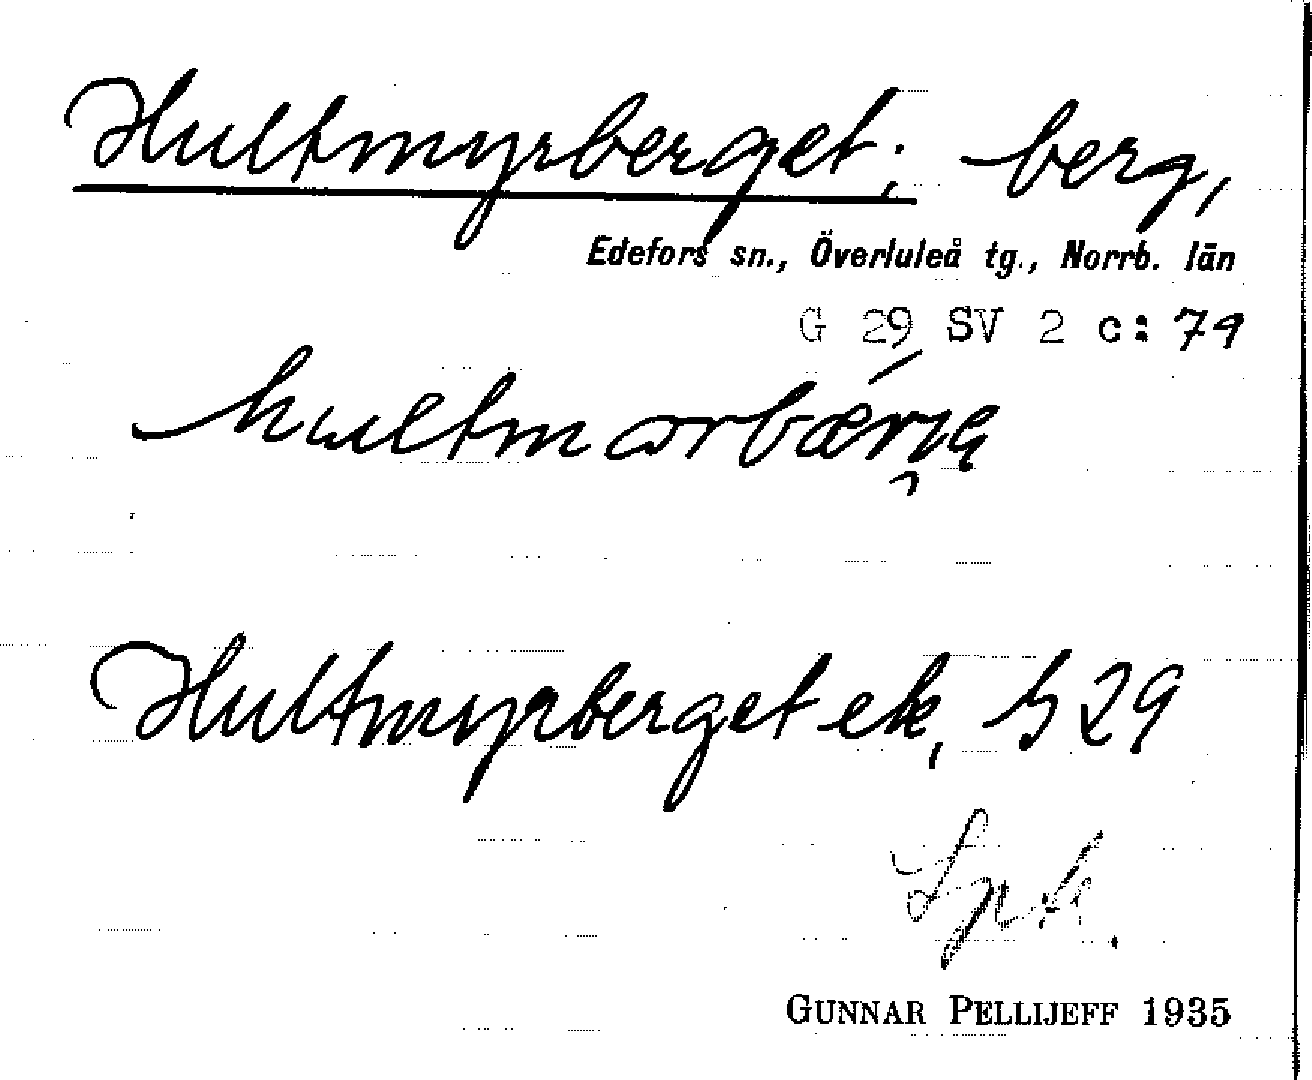 Hultmyrberget; berg,
Edefors sn., Överluleå tg., Norrb. län
G 29 SV 2 c: 79
Hultmyrberget ek, G 29
GUNNAR PELLIJEFF 1935